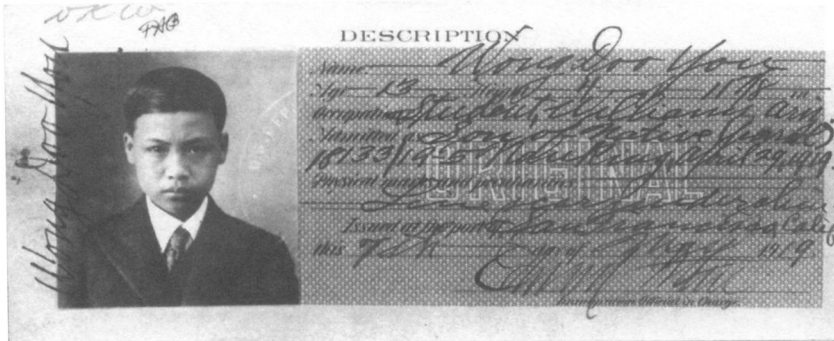 DESCRIPTION
Name Wong Doo Yow
Age 13 Height 4
Occupation Student, Williams, Ariz
Admitted as Son of Native
18133/ Nanking April 29, 1919
Physical marks and peculiarities
ORIGINAL
Issued at the port of San Francisco, Calif
this 7th day of May 1919
Immigration Official in Charge.
Wong Doo Yow